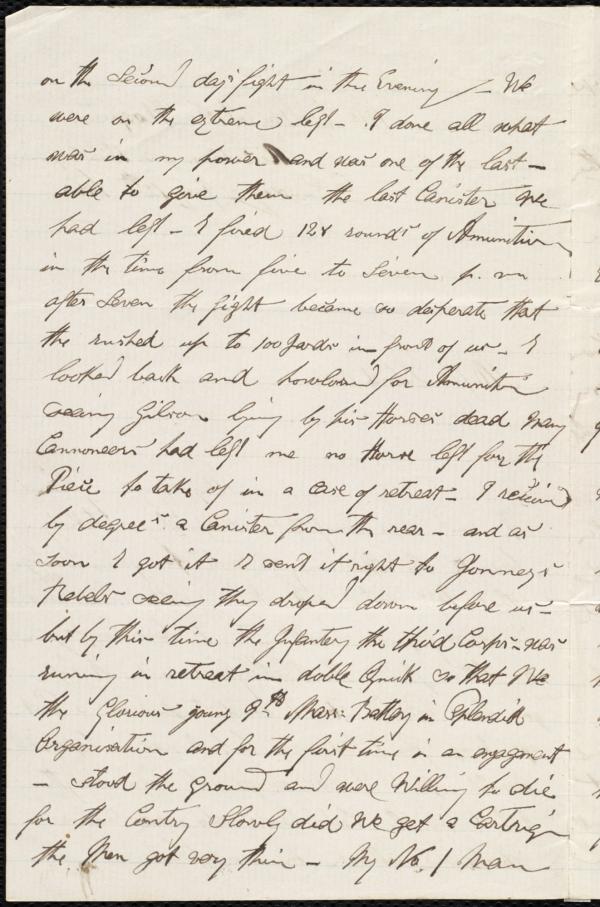 on the Second days fight in the Evening — We
were on the extreme left – I done all what
was in my power and was one of the last –
able to give them the last Canister we
had left – I fired 128 rounds of Amunition
in the time from five to Seven p. m
after Seven the fight became so desperate that
the rushed up to 100 Jards in front of us – I
looked back and howlowd for Amunition
seeing Gilson lying by his Horses dead many
Cannoneers had left me no Horse left for the
Piece to take of in a case of retreat – I received
by degrees a Canister from the rear – and as
soon I got it I sent it right to Jonneys
Rebels seeing they droped down before us –
but by this time the Infantery the third Corps – was
running in retreat in doble Quick so that We
the Glorious young 9th Mass: Battery in Splendid
Organisation and for the first time in an engagement
– stood the ground and were Willing to die
for the Contry Slowly did We get a Cartrige
the Men got very thin – My No. 1 Man